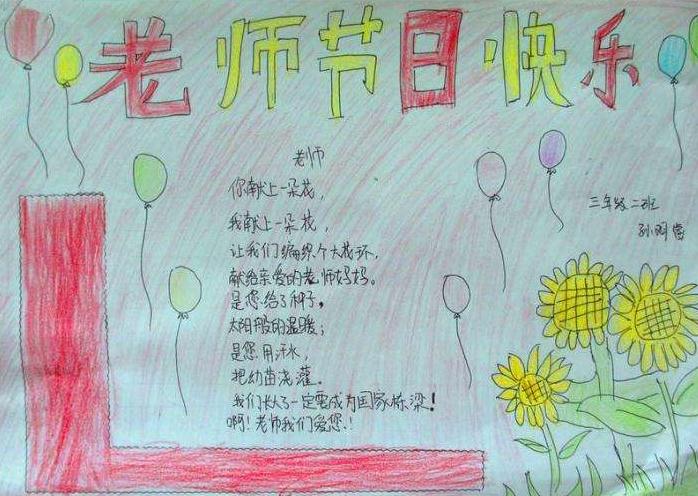 老师节日快乐
老师
你献上一朵花，
我献上一朵花，
让我们编织个大花环，
献给亲爱的老师妈妈。
是您给了种子，
太阳般的温暖；
是您用汗水，
把幼苗浇灌。
我们长大了一定要成为国家栋梁！
啊！老师我们爱您！
三年级二班